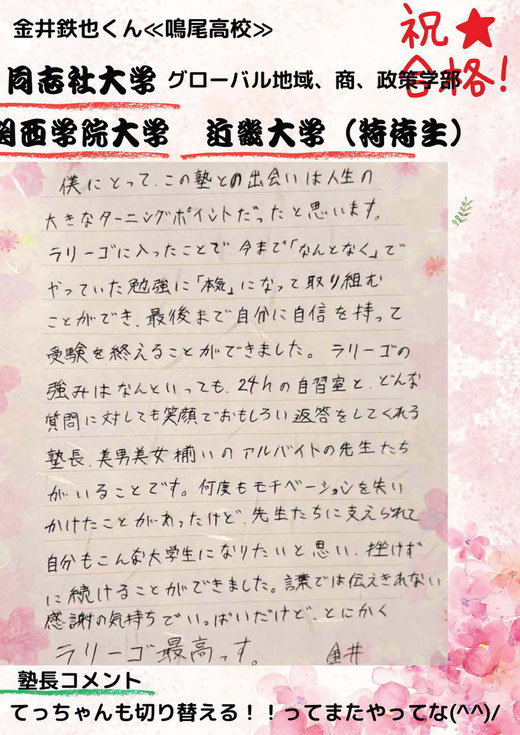 金井鉄也くん≪鳴尾高校≫
祝★
合格!
同志社大学 グローバル地域、商、政策学部
関西学院大学 近畿大学(特待生)
僕にとって、この塾との出会いは人生の
大きなターニングポイントだったと思います。
ラリーゴに入ったことで、今まで「なんとなく」で
やっていた勉強に「本気」になって取り組む
ことができ、最後まで自分に自信を持って
受験を終えることができました。ラリーゴの
強みはなんといっても、24hの自習室と、どんな
質問に対しても笑顔でおもしろい返答をしてくれる
塾長、美男美女揃いのアルバイトの先生たち
がいることです。何度もモチベーションを失い
かけたことがあったけど、先生たちに支えられて
自分もこんな大学生になりたいと思い、挫けず
に続けることができました。言葉では伝えきれない
感謝の気持ちでいっぱいだけど、とにかく
ラリーゴ最高っす。 金井
塾長コメント
てっちゃんも切り替える!!ってまたやってな(^^)/